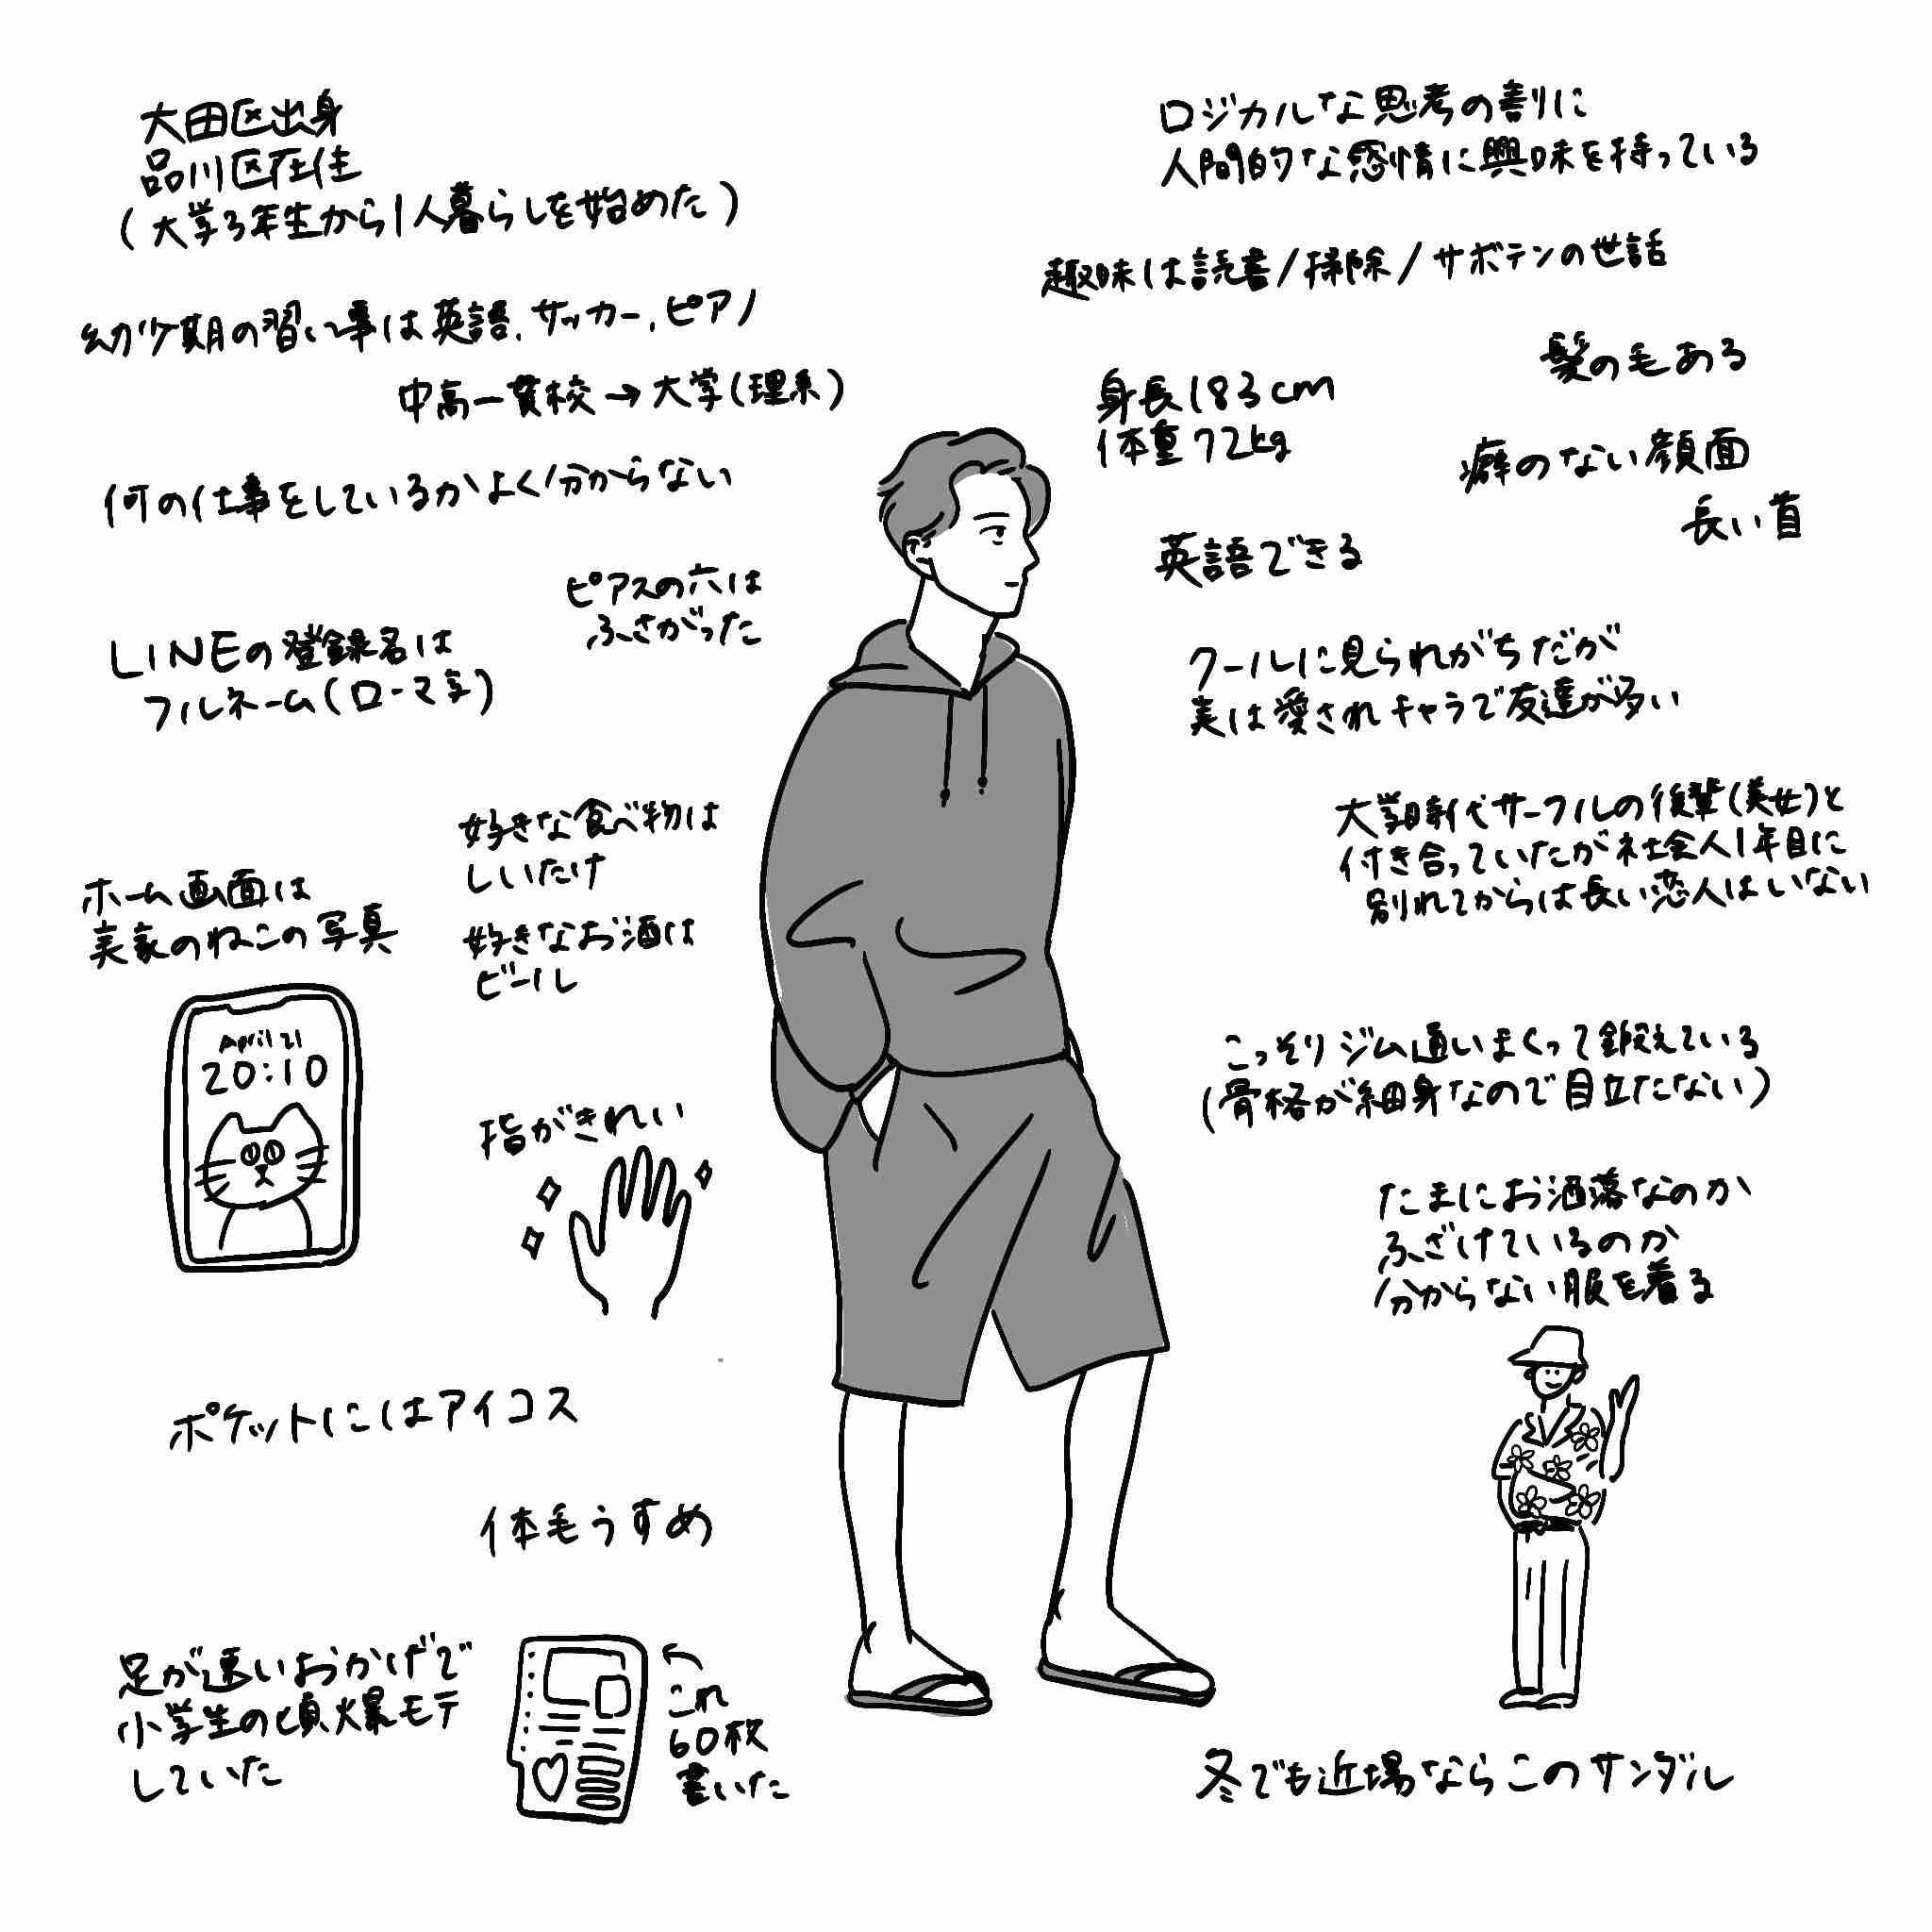 大田区出身
品川区在住
(大学3年生から1人暮らしを始めた)
幼少期の習い事は英語、サッカー、ピアノ
中高一貫校→大学(理系)
何の仕事をしているかよく分からない
ピアスの穴は
ふさがった
LINEの登録名は
フルネーム(ローマ字)
好きな食べ物は
しいたけ
好きなお酒は
ビール
ホーム画面は
実家のねこの写真
April 21
20:10
指がきれい
ポケットにはアイコス
体毛うすめ
足が速いおかげで
小学生の頃爆モテ
していた
これ
60枚
書いた
ロジカルな思考の割に
人間的な感情に興味を持っている
趣味は読書/掃除/サボテンの世話
髪の毛ある
身長183cm
体重72kg
癖のない顔面
長い首
英語できる
クールに見られがちだが
実は愛されキャラで友達が多い
大学時代サークルの後輩(美女)と
付き合っていたが社会人1年目に
別れてからは長い恋人はいない
こっそりジム通いまくって鍛えている
(骨格が細身なので目立たない)
たまにお洒落なのか
ふざけているのか
分からない服を着る
冬でも近場ならこのサンダル